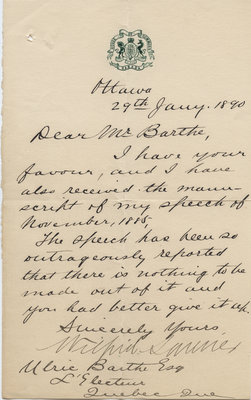 Ottawa
29th Jany. 1890
Dear Mr Barthe,
I have your
favour, and I have
also received the manu-
script of my speech of
November, 1885.
The speech has been so
outrageously reported
that there is nothing to be
made out of it and
you had better give it up.
Sincerely Yours
Wilfrid Laurier
Ulric Barthe Esq
L'Electeur
Quebec Que